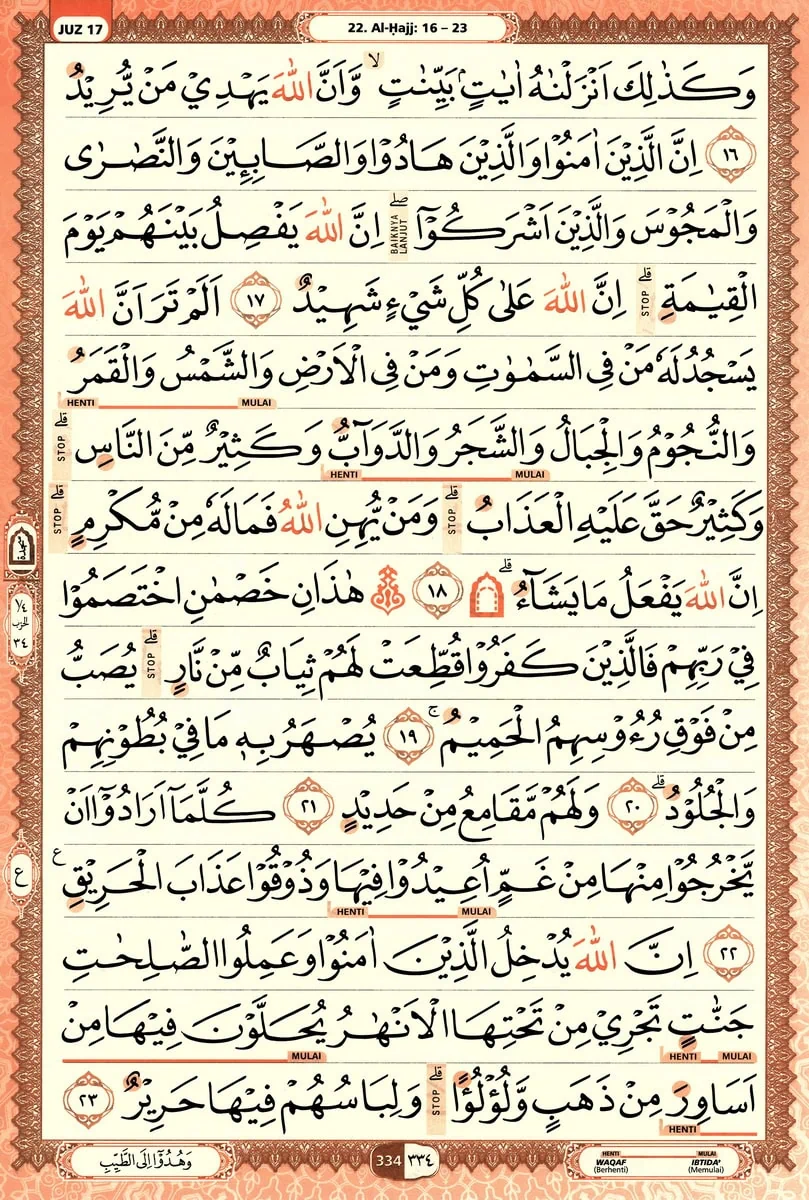 JUZ 17
22. Al-Ḥajj: 16 – 23
وَكَذٰلِكَ اَنْزَلْنٰهُ اٰيٰتٍۢ بَيِّنٰتٍۙ وَّاَنَّ اللّٰهَ يَهْدِيْ مَنْ يُّرِيْدُ
١٦ اِنَّ الَّذِيْنَ اٰمَنُوْا وَالَّذِيْنَ هَادُوْا وَالصَّابِـِٕيْنَ وَالنَّصٰرٰى
وَالْمَجُوْسَ وَالَّذِيْنَ اَشْرَكُوْٓاۖ BAIKNYA LANJUT اِنَّ اللّٰهَ يَفْصِلُ بَيْنَهُمْ يَوْمَ
الْقِيٰمَةِۗ STOP اِنَّ اللّٰهَ عَلٰى كُلِّ شَيْءٍ شَهِيْدٌ ١٧ اَلَمْ تَرَ اَنَّ اللّٰهَ
يَسْجُدُ لَهٗ مَنْ فِى السَّمٰوٰتِ وَمَنْ فِى الْاَرْضِ وَالشَّمْسُ وَالْقَمَرُ
MULAI HENTI
وَالنُّجُوْمُ وَالْجِبَالُ وَالشَّجَرُ وَالدَّوَاۤبُّ وَكَثِيْرٌ مِّنَ النَّاسِۗ STOP
MULAI HENTI
وَكَثِيْرٌ حَقَّ عَلَيْهِ الْعَذَابُۗ STOP وَمَنْ يُّهِنِ اللّٰهُ فَمَا لَهٗ مِنْ مُّكْرِمٍۗ STOP
اِنَّ اللّٰهَ يَفْعَلُ مَا يَشَاۤءُۗ ١٨ هٰذَانِ خَصْمٰنِ اخْتَصَمُوْا
سجدة
١/٤ الحزب ٣٤
فِيْ رَبِّهِمْ فَالَّذِيْنَ كَفَرُوْا قُطِّعَتْ لَهُمْ ثِيَابٌ مِّنْ نَّارٍۗ STOP يُصَبُّ
مِنْ فَوْقِ رُءُوْسِهِمُ الْحَمِيْمُۚ ١٩ يُصْهَرُ بِهٖ مَا فِيْ بُطُوْنِهِمْ
وَالْجُلُوْدُۗ ٢٠ وَلَهُمْ مَّقَامِعُ مِنْ حَدِيْدٍ ٢١ كُلَّمَآ اَرَادُوْٓا اَنْ
يَّخْرُجُوْا مِنْهَا مِنْ غَمٍّ اُعِيْدُوْا فِيْهَا وَذُوْقُوْا عَذَابَ الْحَرِيْقِ ع
ع
MULAI HENTI
٢٢ اِنَّ اللّٰهَ يُدْخِلُ الَّذِيْنَ اٰمَنُوْا وَعَمِلُوا الصّٰلِحٰتِ
جَنّٰتٍ تَجْرِيْ مِنْ تَحْتِهَا الْاَنْهٰرُ يُحَلَّوْنَ فِيْهَا مِنْ
MULAI HENTI MULAI
اَسَاوِرَ مِنْ ذَهَبٍ وَّلُؤْلُؤًاۗ STOP وَلِبَاسُهُمْ فِيْهَا حَرِيْرٌ ٢٣
HENTI
وَهُدُوْٓا اِلَى الطَّيِّبِ
334 ٣٣٤
HENTI MULAI
WAQAF IBTIDA'
(Berhenti) (Memulai)